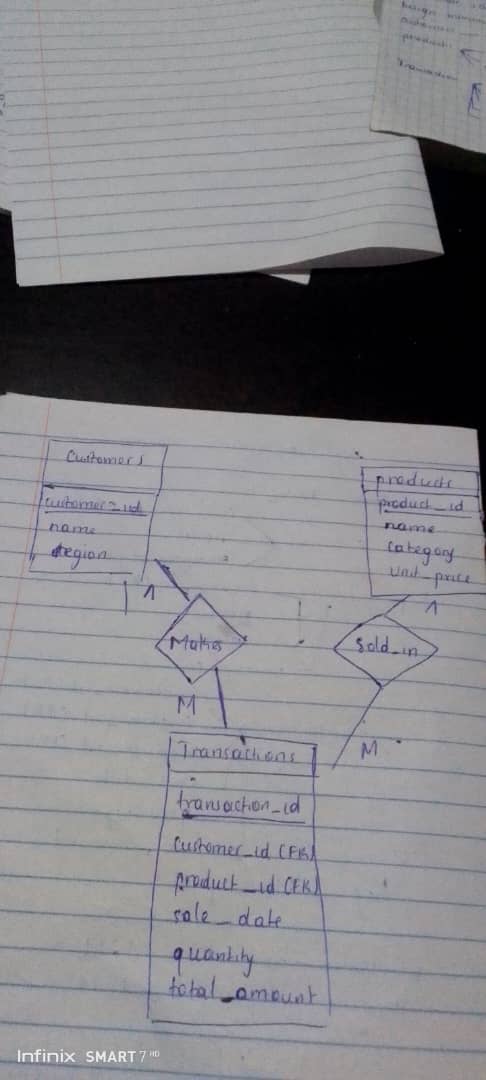 products
Transaction
Customers
customer_id
name
region
products
product_id
name
category
unit_price
1
1
Makes
Sold_in
M
M
Transactions
transaction_id
Customer_id (FK)
product_id (FK)
sale_date
quantity
total_amount
Infinix SMART 7 HD